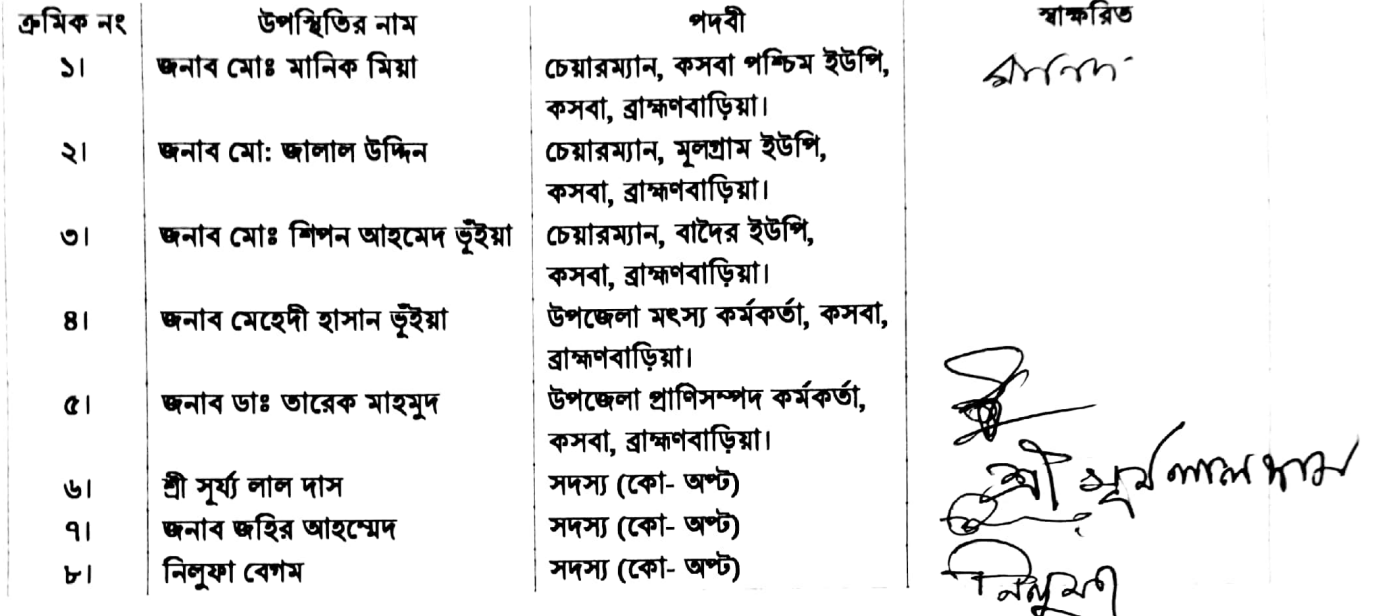 ক্রমিক নং উপস্থিতির নাম পদবী স্বাক্ষরিত
১। জনাব মোঃ মানিক মিয়া চেয়ারম্যান, কসবা পশ্চিম ইউপি, মানিক
কসবা, ব্রাহ্মণবাড়িয়া।
২। জনাব মো: জালাল উদ্দিন চেয়ারম্যান, মূলগ্রাম ইউপি,
কসবা, ব্রাহ্মণবাড়িয়া।
৩। জনাব মোঃ শিপন আহমেদ ভূঁইয়া চেয়ারম্যান, বাদৈর ইউপি,
কসবা, ব্রাহ্মণবাড়িয়া।
৪। জনাব মেহেদী হাসান ভূঁইয়া উপজেলা মৎস্য কর্মকর্তা, কসবা,
ব্রাহ্মণবাড়িয়া।
৫। জনাব ডাঃ তারেক মাহমুদ উপজেলা প্রাণিসম্পদ কর্মকর্তা,
কসবা, ব্রাহ্মণবাড়িয়া।
৬। শ্রী সূর্য্য লাল দাস সদস্য (কো- অপ্ট) শ্রী সূর্য লাল দাস
৭। জনাব জহির আহম্মেদ সদস্য (কো- অপ্ট)
৮। নিলুফা বেগম সদস্য (কো- অপ্ট) নিলুফা